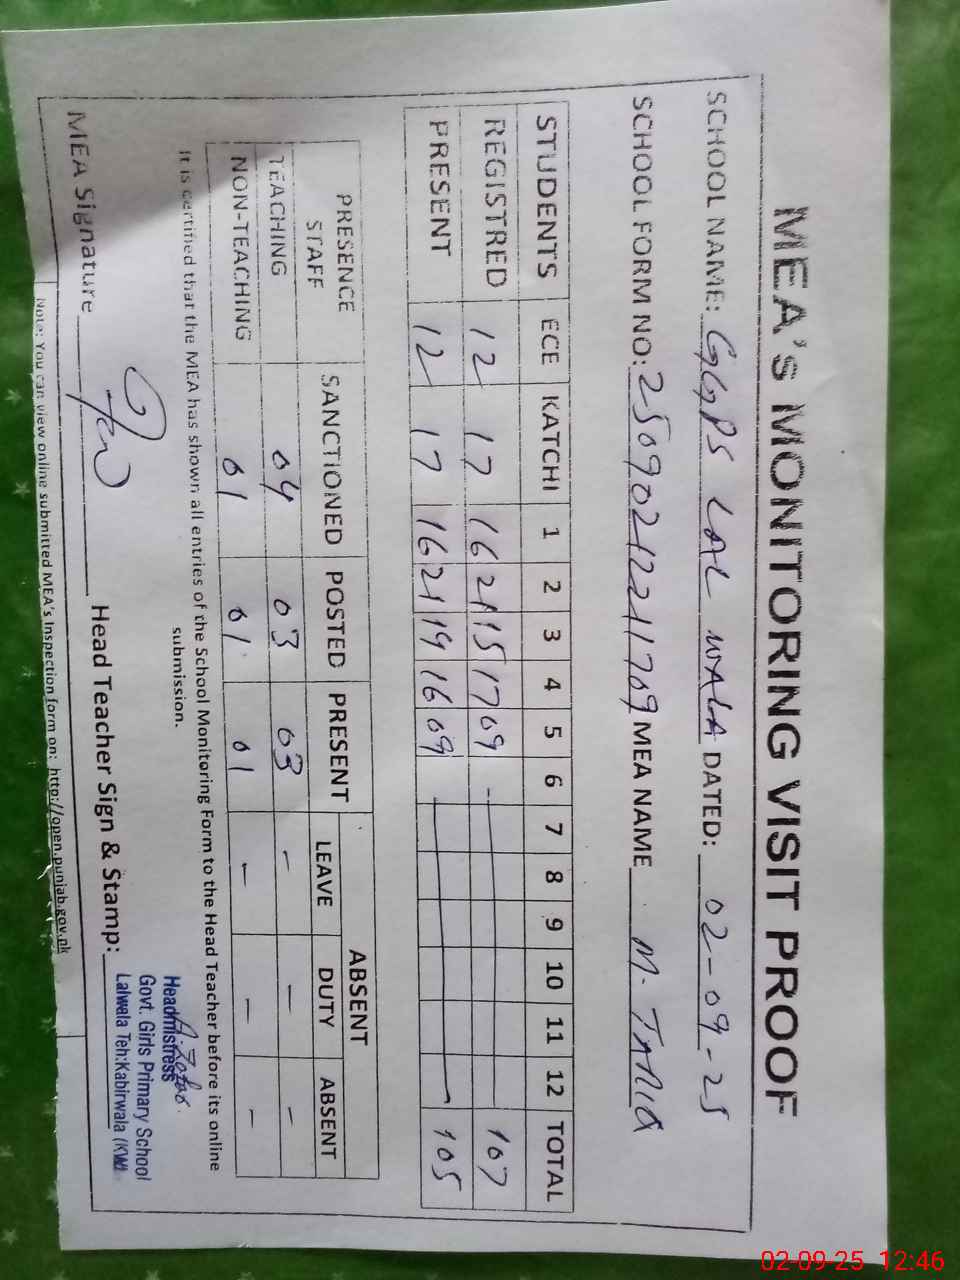 MEA's MONITORING VISIT PROOF
SCHOOL NAME: GGPS LAL WALA DATED: 02-09-25
SCHOOL FORM NO: 250902122121709 MEA NAME M. TARIQ
STUDENTS ECE KATCHI 1 2 3 4 5 6 7 8 9 10 11 12 TOTAL
REGISTRED 12 17 16 21 15 17 09 - 107
PRESENT 12 17 16 21 19 16 09 105
PRESENCE STAFF SANCTIONED POSTED PRESENT ABSENT
LEAVE DUTY ABSENT
TEACHING 04 03 03 - - -
NON-TEACHING 01 01 01 - - -
It is certified that the MEA has shown all entries of the School Monitoring Form to the Head Teacher before its online
submission.
MEA Signature Head Teacher Sign & Stamp:
Headmistress
Govt. Girls Primary School
Lalwala Teh:Kabirwala
Note: You can view online submitted MEA's Inspection form on: http://open.punjab.gov.pk
02-09-25 12:46